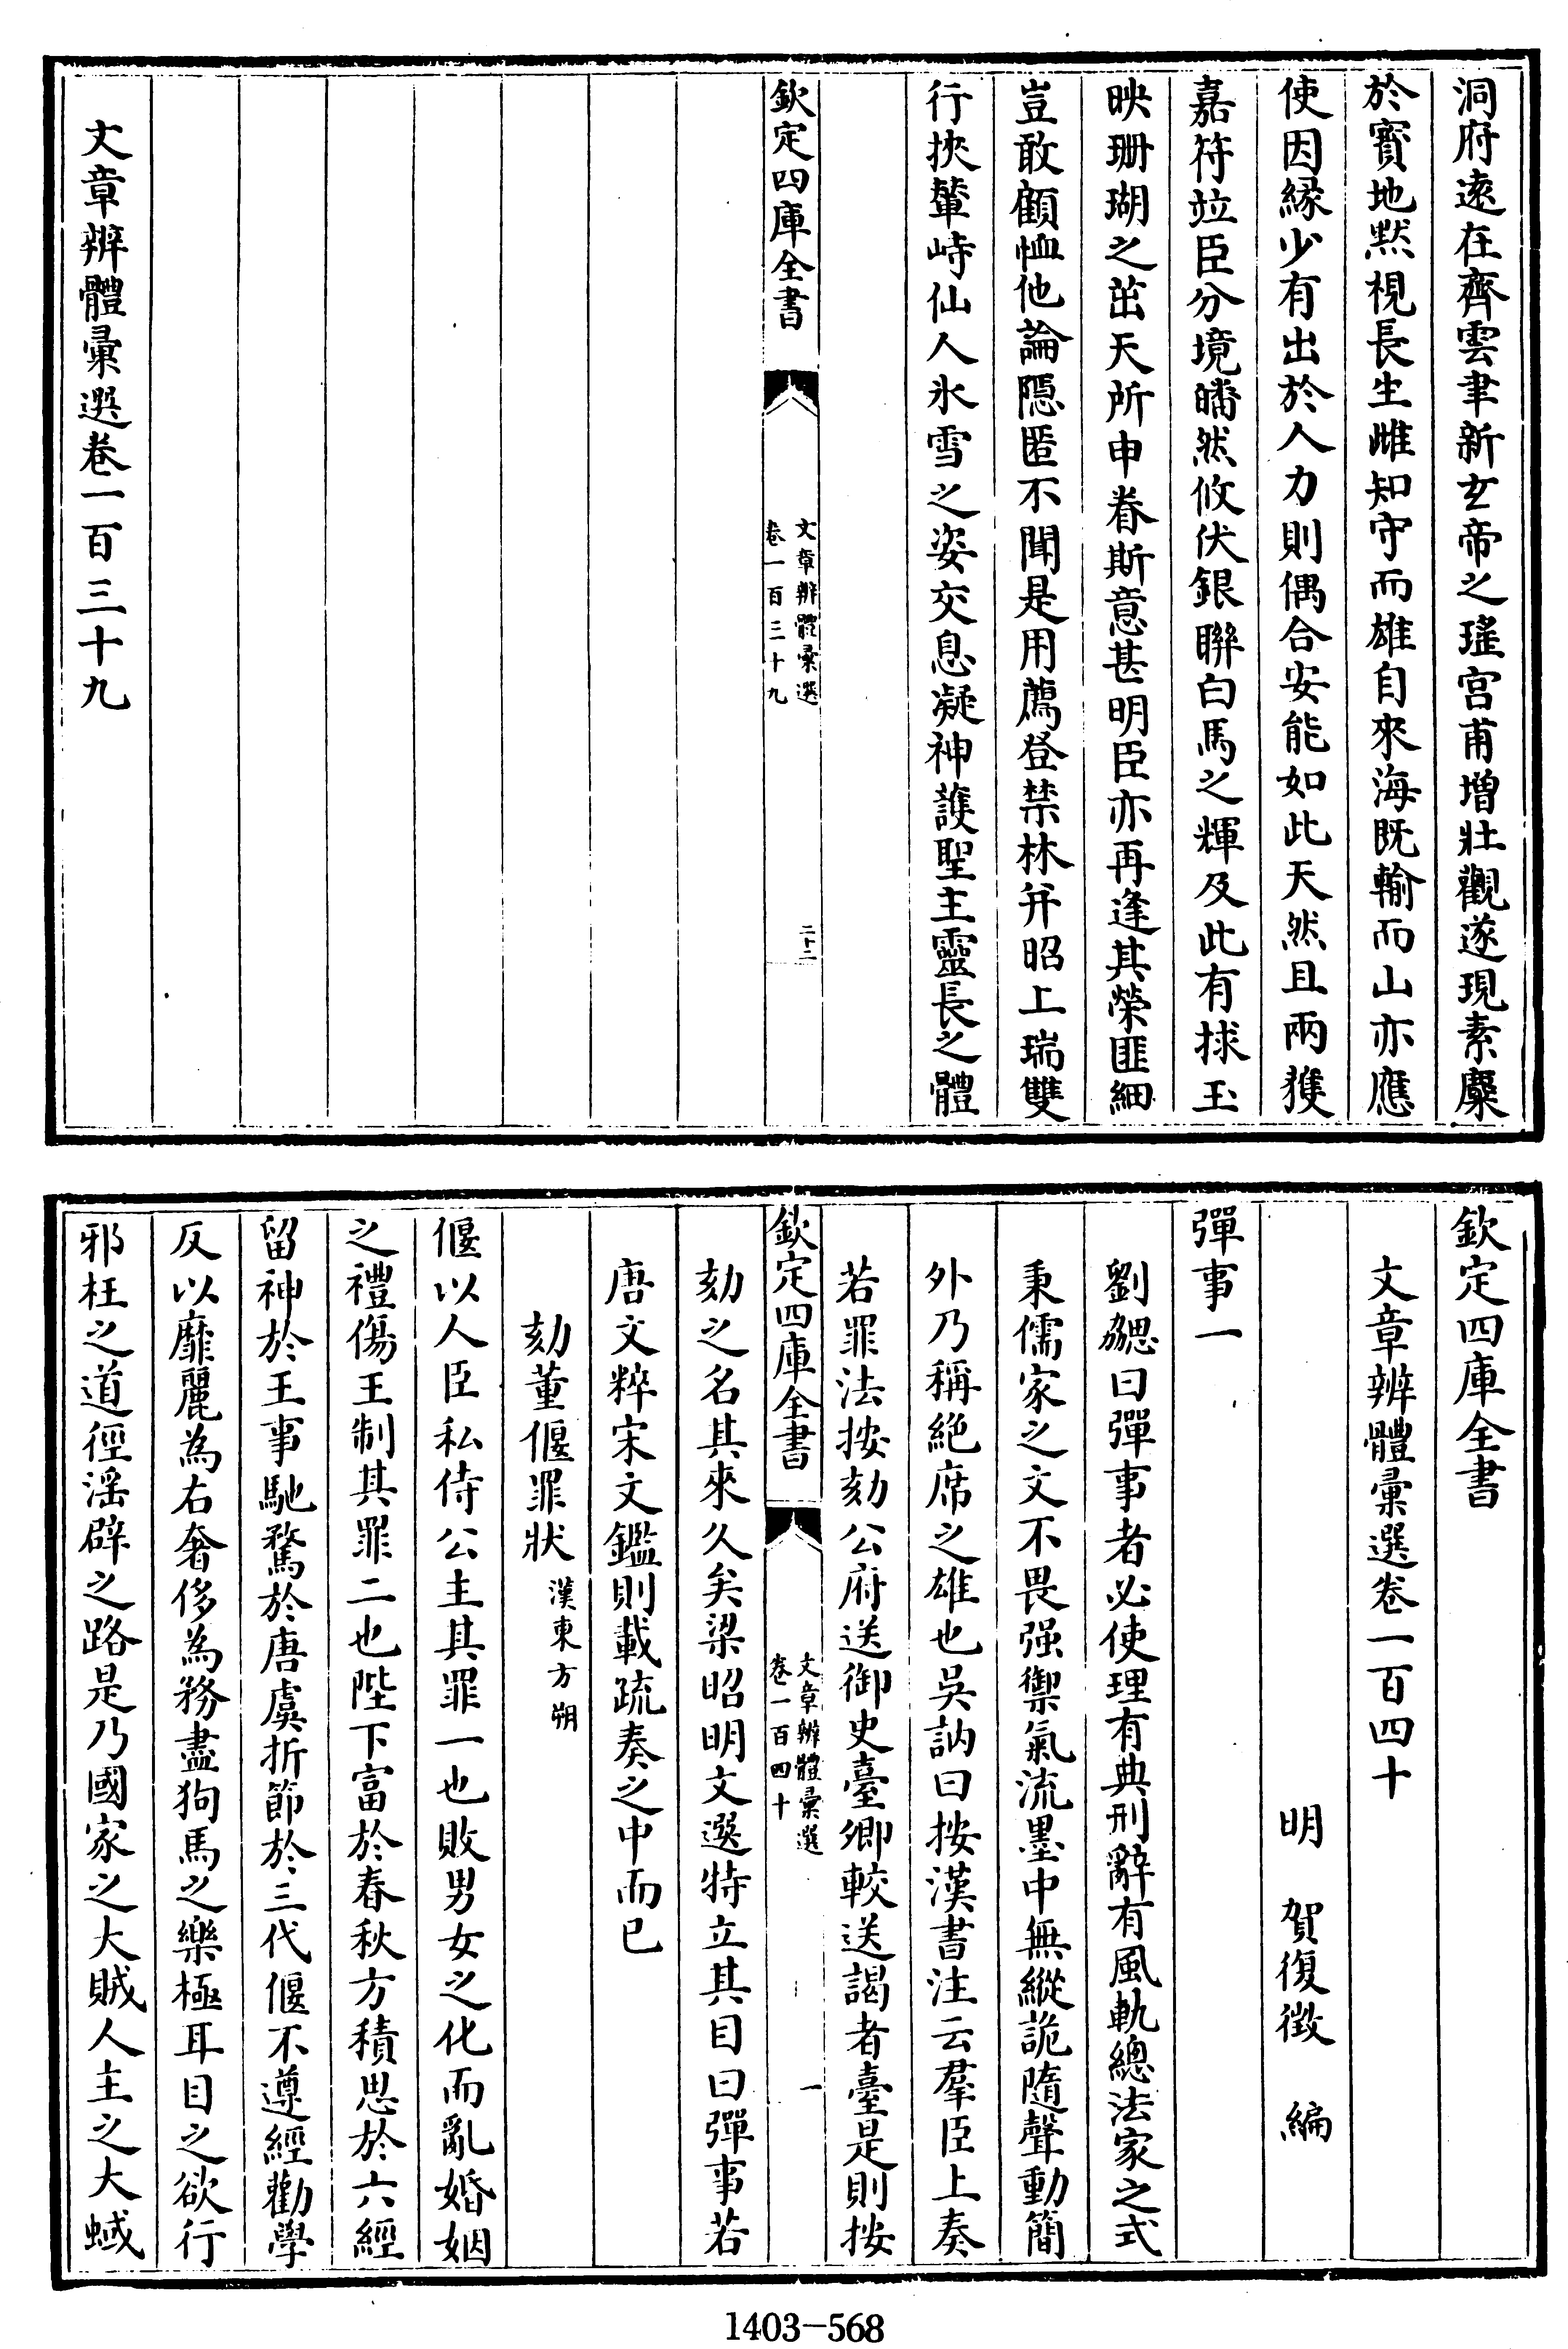 洞府遠在齊雲聿新玄帝之瑤宫甫増壯觀遂現素麋
於寳地黙視長生雌知守而雄自來海既輸而山亦應
使因縁少有出於人力則偶合安能如此天然且兩獲
嘉符竝臣分境皤然攸伏銀聨白馬之輝及此有捄玉
映珊瑚之茁天所申眷斯意甚明臣亦再逢其榮匪細
豈敢顧恤他論隠匿不聞是用薦登禁林并昭上瑞雙
行挾輦峙仙人氷雪之姿交息凝神護聖主靈長之體
欽定四庫全書
文章辨體彚選
卷一百三十九
二十二
文章辨體彚選卷一百三十九
欽定四庫全書
文章辨體彚選卷一百四十
明 賀復徴 編
彈事一
劉勰曰彈事者必使理有典刑辭有風軌總法家之式
秉儒家之文不畏强禦氣流墨中無縱詭隨聲動簡
外乃稱絶席之雄也吳訥曰按漢書注云羣臣上奏
若罪法按劾公府送御史臺卿較送謁者臺是則按
欽定四庫全書
文章辨體彚選
卷一百四十
一
劾之名其來久矣梁昭明文選特立其目曰彈事若
唐文粹宋文鑑則載疏奏之中而已
劾董偃罪狀 漢東方朔
偃以人臣私侍公主其罪一也敗男女之化而亂婚姻
之禮傷王制其罪二也陛下富於春秋方積思於六經
留神於王事馳騖於唐虞折節於三代偃不遵經勸學
反以靡麗為右奢侈為務盡狗馬之樂極耳目之欲行
邪枉之道徑淫辟之路是乃國家之大賊人主之大蜮
1403-568